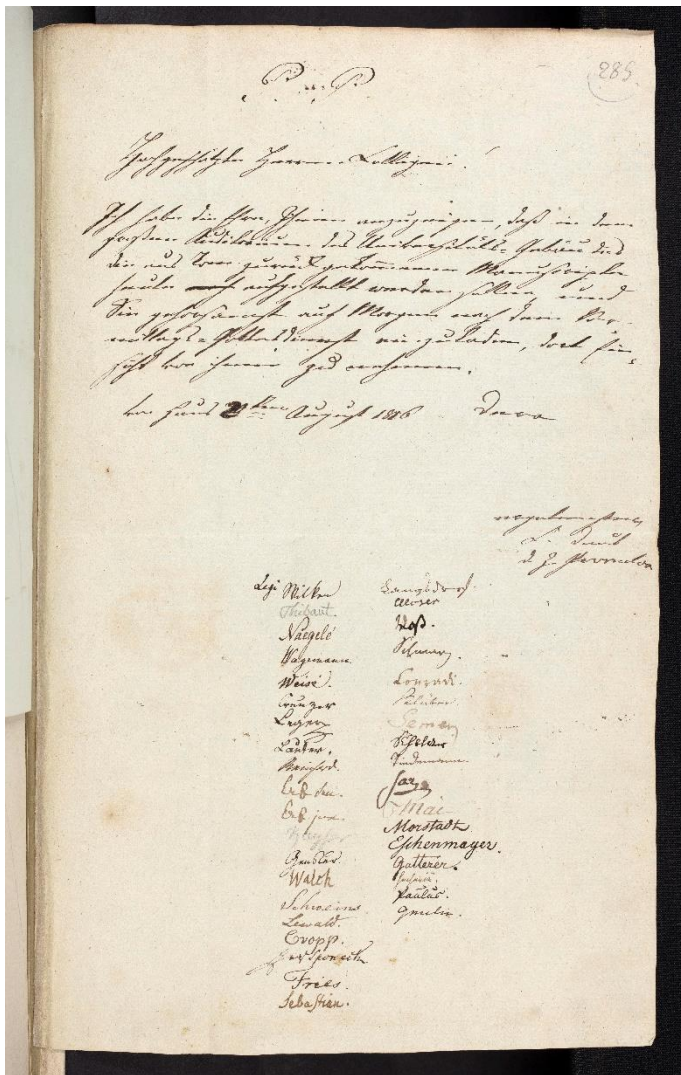 285
P. P.
Hochgeschätzte Herren Collegen!
Ich habe die Ehre, Ihnen anzuzeigen, daß in dem
großen Auditorium des Universitäts-Gebäudes
die aus Rom zurückgekommenen Manuscripte
heute aufgestellt werden sollen, und
Sie gehorsamst auf Morgen nach dem Vor-
mittags-Gottesdienst einzuladen, dort Ein-
sicht von ihnen zu nehmen.
von Haus ten August 1816
Daub
d. Z. Prorector
Legi Wilken
Thibaut.
Naegelé
Wagemann
Weise.
Creuzer
Leger
Lauter.
Erb sen.
Erb jun.
Gensler.
Walch
Schweins
Lewald.
Cropp.
Fries.
Sebastian.
Langsdorf
Moser
Voß.
Schwarz.
Conradi.
Semer
Schelver
Tiedemann
Mai
Morstadt
Eschenmayer.
Gatterer.
Paulus.
Gmelin.